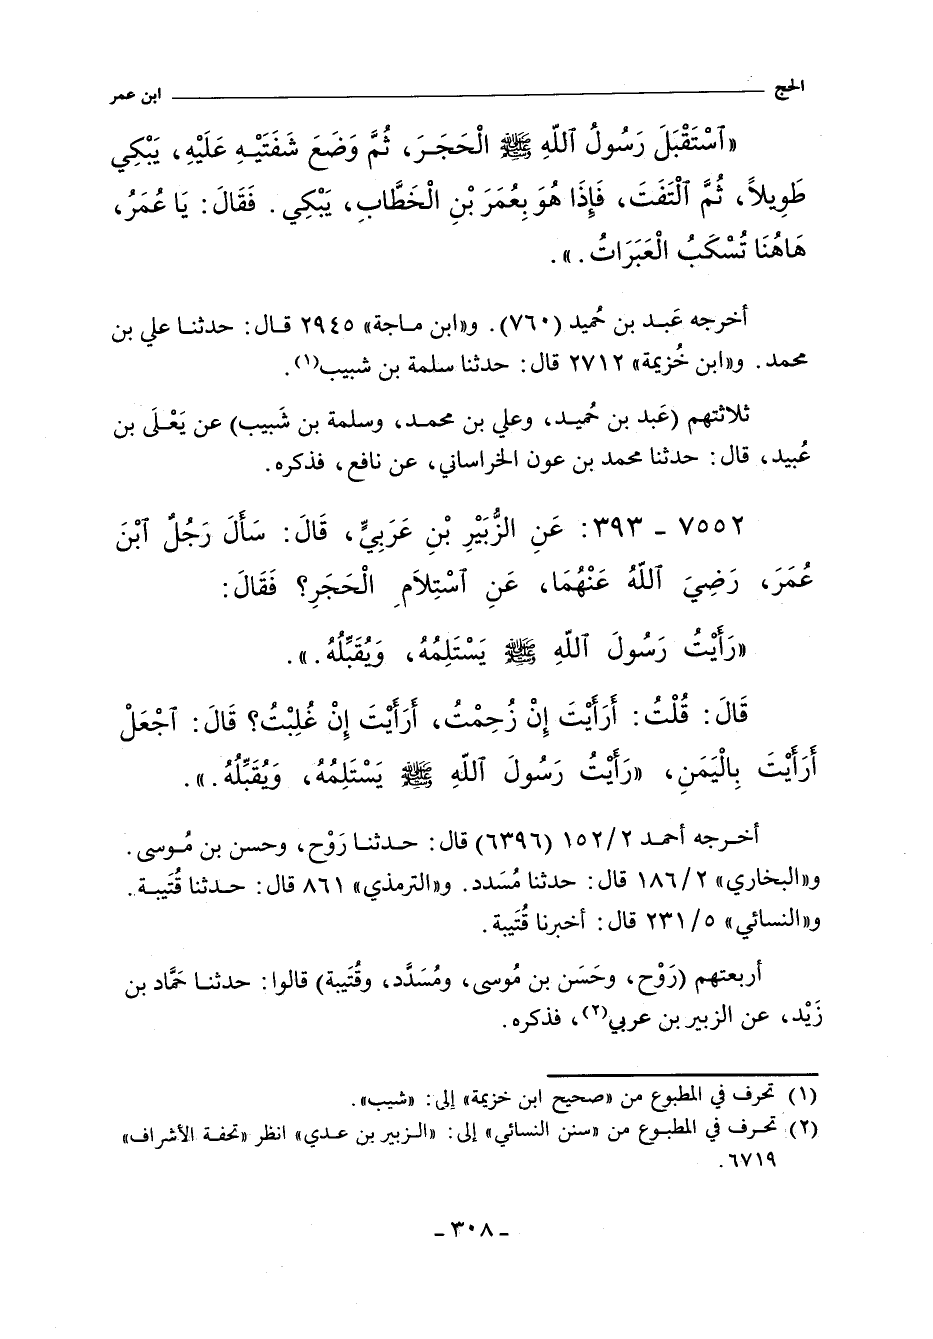 الحج ابن عمر
«ٱسْتَقْبَلَ رَسُولُ ٱللّهِ ﷺ الْحَجَرَ، ثُمَّ وَضَعَ شَفَتَيْهِ عَلَيْهِ، يَبْكِي
طَوِيلاً، ثُمَّ ٱلْتَفَتَ، فَإِذَا هُوَ بِعُمَرَ بْنِ الْخَطَّابِ، يَبْكِي. فَقَالَ: يَا عُمَرُ،
هَاهُنَا تُسْكَبُ الْعَبَرَاتُ.».
أخرجه عَبد بن حُميد (٧٦٠). و«ابن ماجة» ٢٩٤٥ قال: حدثنا علي بن
محمد. و«ابن خُزيمة» ٢٧١٢ قال: حدثنا سلمة بن شبيب(١).
ثلاثتهم (عَبد بن حُميد، وعلي بن محمد، وسلمة بن شَبيب) عن يَعْلَى بن
عُبيد، قال: حدثنا محمد بن عون الخراساني، عن نافع، فذكره.
٧٥٥٢ - ٣٩٣: عَنِ الزُّبَيْرِ بْنِ عَرَبِيٍّ، قَالَ: سَأَلَ رَجُلٌ ٱبْنَ
عُمَرَ، رَضِيَ ٱللّهُ عَنْهُمَا، عَنِ ٱسْتِلاَمِ الْحَجَرِ؟ فَقَالَ:
«رَأَيْتُ رَسُولَ ٱللّهِ ﷺ يَسْتَلِمُهُ، وَيُقَبِّلُهُ.».
قَالَ: قُلْتُ: أَرَأَيْتَ إِنْ زُحِمْتُ، أَرَأَيْتَ إِنْ غُلِبْتُ؟ قَالَ: ٱجْعَلْ
أَرَأَيْتَ بِالْيَمَنِ، «رَأَيْتُ رَسُولَ ٱللّهِ ﷺ يَسْتَلِمُهُ، وَيُقَبِّلُهُ.».
أخرجه أحمد ١٥٢/٢ (٦٣٩٦) قال: حدثنا رَوْح، وحسن بن مُوسى.
و«البخاري» ١٨٦/٢ قال: حدثنا مُسَدد. و«الترمذي» ٨٦١ قال: حدثنا قُتَيبة.
و«النسائي» ٢٣١/٥ قال: أخبرنا قُتَيبة.
أربعتهم (رَوْح، وحَسَن بن مُوسى، ومُسَدَّد، وقُتَيبة) قالوا: حدثنا حَمَّاد بن
زَيْد، عن الزبير بن عربي(٢)، فذكره.
(١) تحرف في المطبوع من «صحيح ابن خزيمة» إلى: «شيب».
(٢) تحرف في المطبوع من «سنن النسائي» إلى: «الزبير بن عدي» انظر «تحفة الأشراف»
٦٧١٩.
- ٣٠٨ -